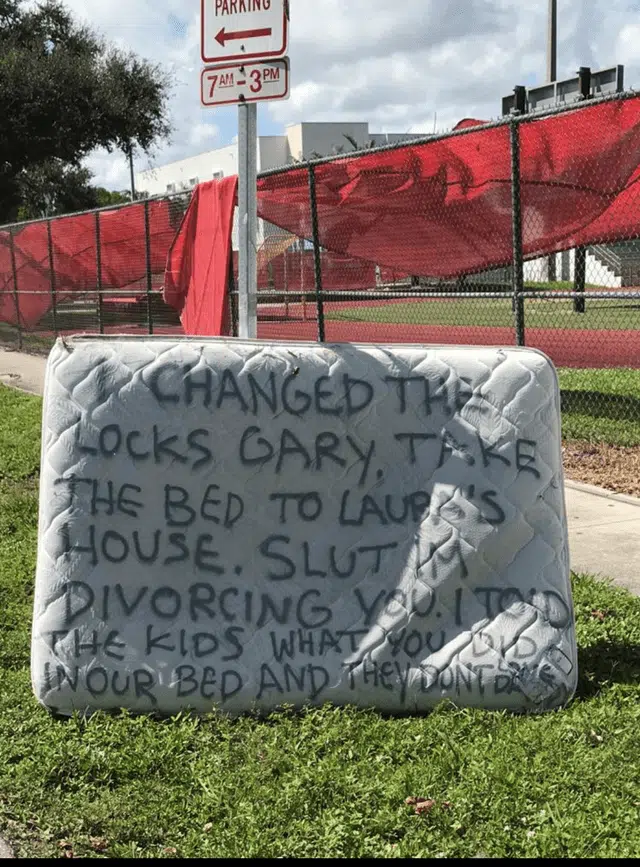 PARKING
7AM - 3PM
I CHANGED THE
LOCKS GARY. TAKE
THE BED TO LAURA'S
HOUSE. SLUT IM
DIVORCING YOU. I TOLD
THE KIDS WHAT YOU DID
IN OUR BED AND THEY DONT